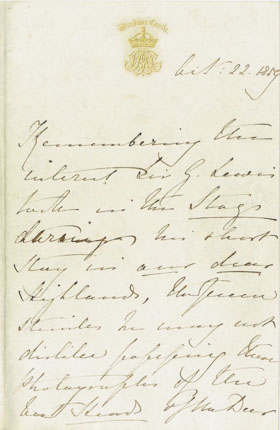 Windsor Castle.
Oct: 22. 1859
Remembering the
interest Sir G. Lewis
took in the Stags
during his short
stay in our dear
Highlands, the Queen
thinks he may not
dislike possessing these
Photographs of the
best Heads of the Deer